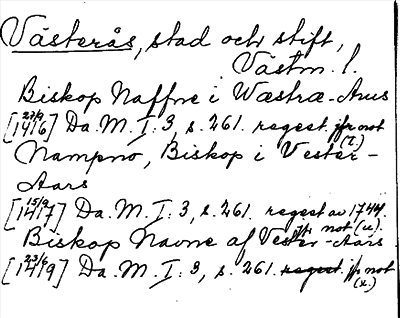 Västerås, stad och stift,
Västm. l.
Biskop Naffne i Wæstræ-Arus
[23/9 1416] Da. M. I. 3, s. 261. regest. jfr not (t.)
Nampno, Biskop i Vester-
Aars
[15/9 1417] Da. M. I. 3, s. 261. regest av 1744.
jfr not (u.)
Biskop Navne af Vester-Aars.
[23/6 1419] Da. M. I. 3, s. 261. regest. jfr not (x.)